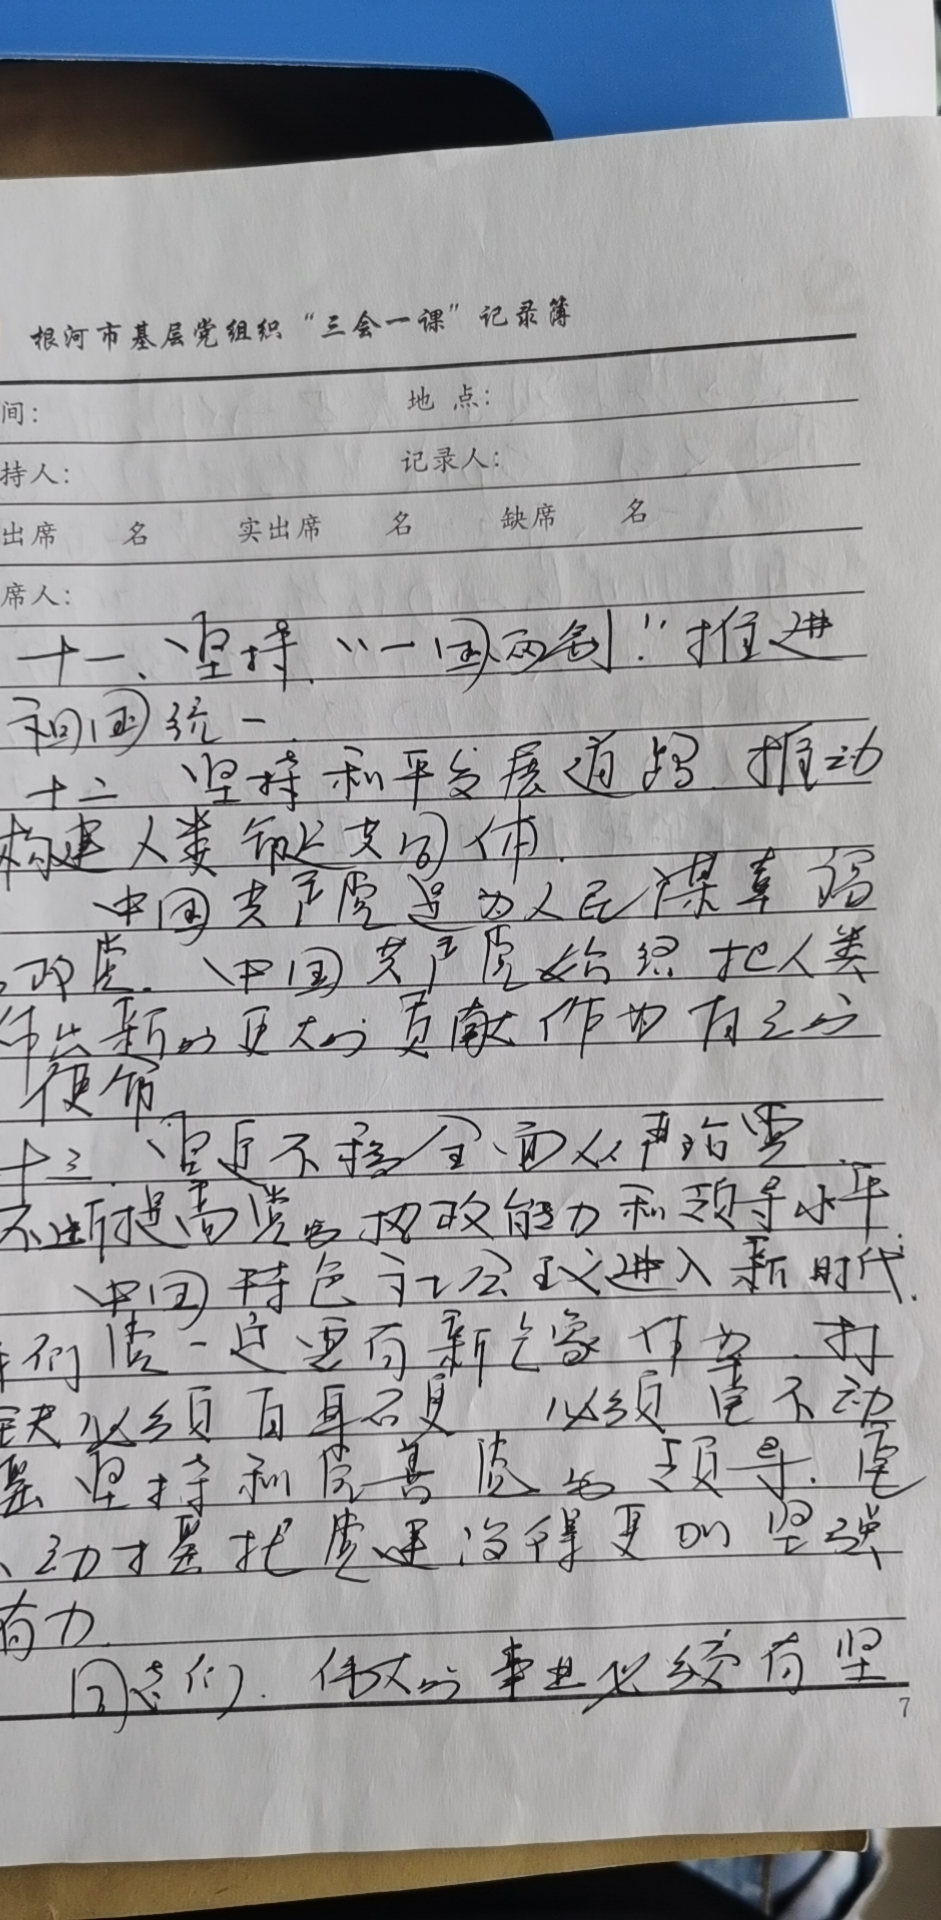 根河市基层党组织“三会一课”记录簿
间: 地点:
持人: 记录人:
出席 名 实出席 名 缺席 名
席人:
十一、坚持“一国两制”推进
祖国统一.
十二 坚持和平发展道路.推动
构建人类命运共同体.
中国共产党是为人民谋幸福
政党.中国共产党始终把人类
作出新的更大的贡献作为自己的
使命
十三.坚定不移全面从严治党
不断提高党的执政能力和领导水平.
中国特色社会主义进入新时代.
们党一定要有新气象 作为.打
铁必须自身硬 必须毫不动
坚持和完善党的领导.毫
动摇把党建设得更加坚强
有力.
同志们.伟大的事业必须有坚
7